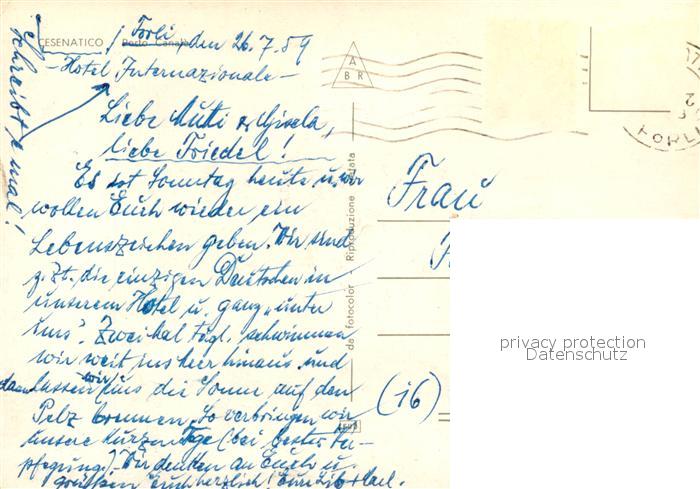 CESENATICO Porto Canale
j Forli den 26.7.59
- Hotel Internazionale -
Schreibt 'e mal!
Liebe Mutti u. Gisela,
liebe Friedel!
Es ist Sonntag heute u. wir
wollen Euch wieder ein
Lebenszeichen geben. Wir sind
z. Zt. die einzigen Deutschen in
unserem Hotel u. ganz „unter
uns". Zwei Mal tägl. schwimmen
wir weit ins Meer hinaus und
dann lassen wir uns die Sonne auf den
Pelz brennen. So verbringen wir
unsere kurzen Tage (bei bester Ver-
pflegung.) Wir denken an Euch u.
grüßen Euch herzlich! Eure
A
B R
FORLI
da fotocolor Riproduzione vietata
Frau
(16)
privacy protection
Datenschutz